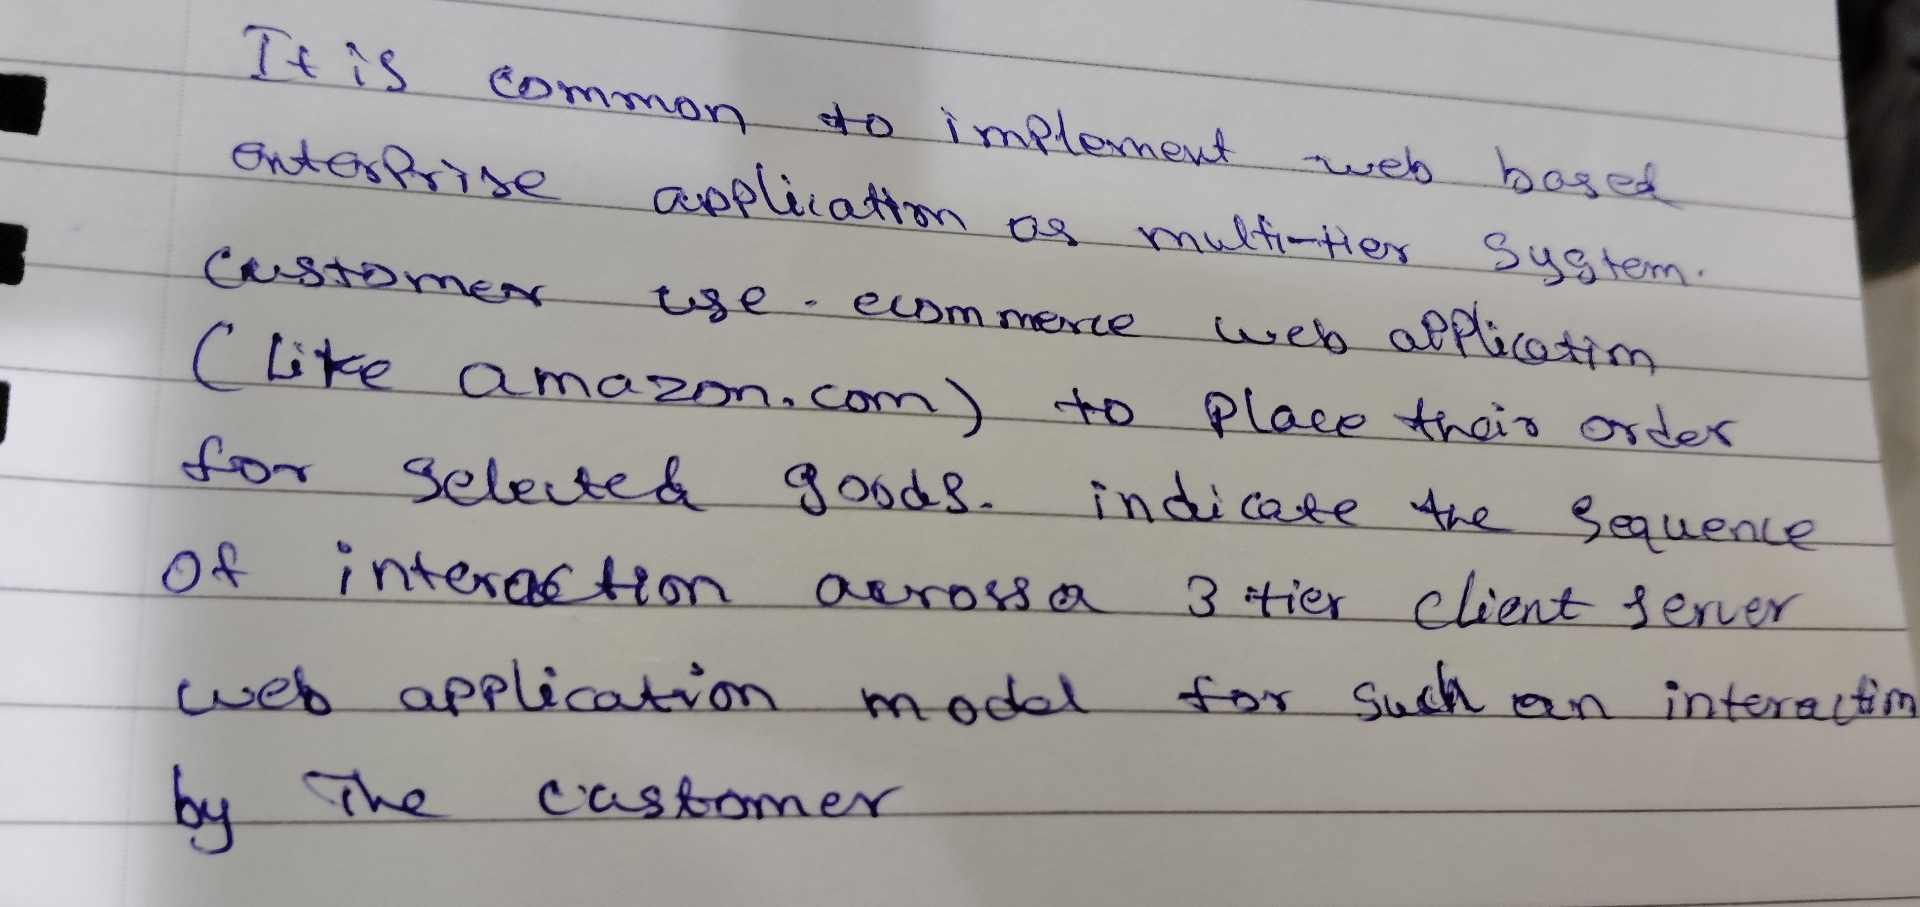 It is common to implement web based
enterprise application as multi-tier system.
customer use. ecommerce web application
(like amazon.com) to place their order
for selected goods. indicate the sequence
of interaction across a 3 tier client server
web application model for such an interaction
by The customer